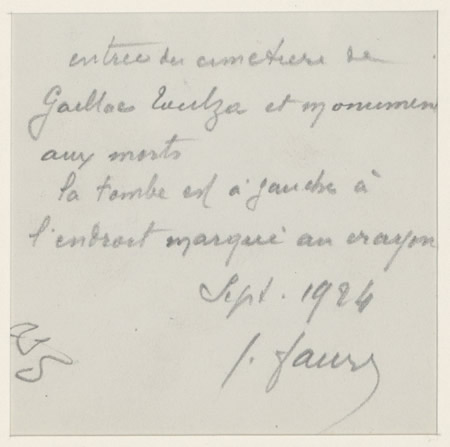 entrée du cimetiere de
Gaillac Toulza et monumen
aux morts
la tombe est à gauche à
l'endroit marqué au crayon
Sept. 1924
J. Faure